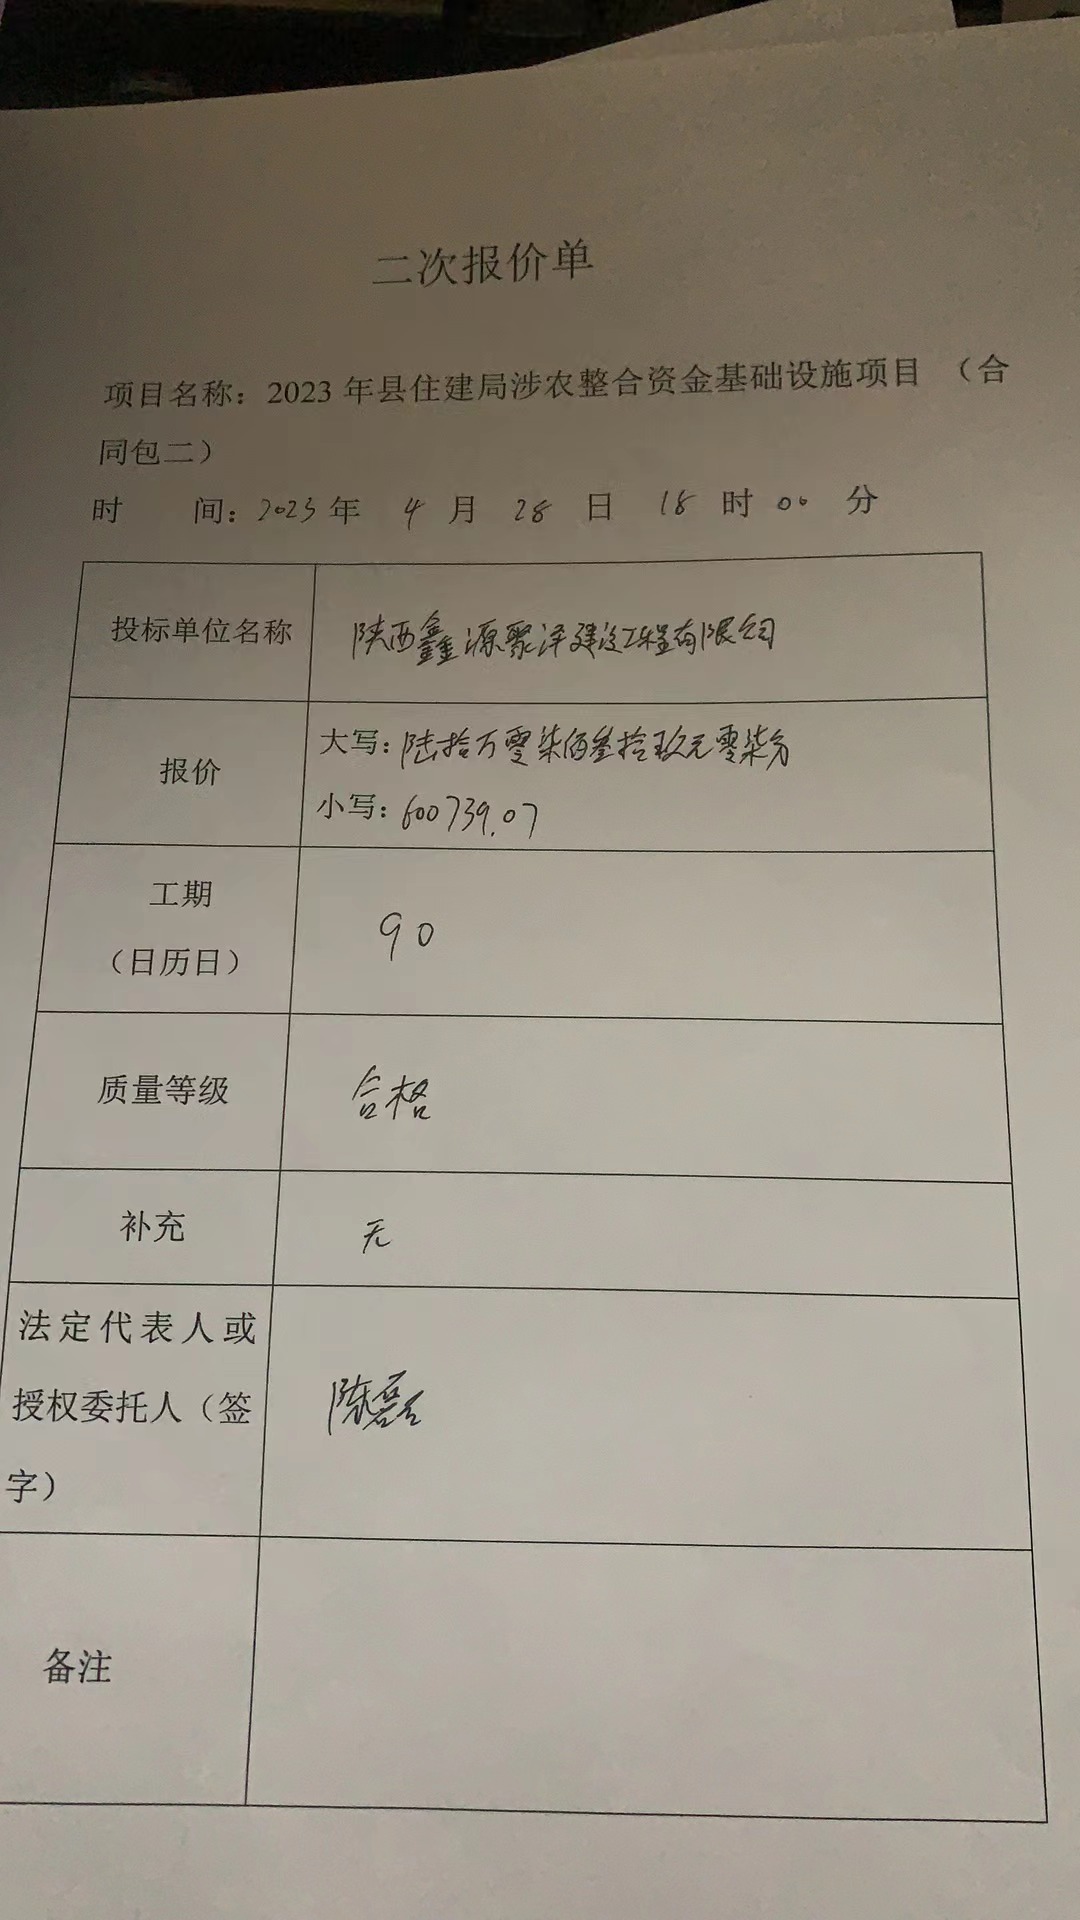 二次报价单
项目名称：2023 年县住建局涉农整合资金基础设施项目 （合
同包二）
时 间：2023 年 4 月 28 日 18 时 00 分
投标单位名称
陕西鑫源聚泽建设工程有限公司
报价
大写：陆拾万零柒佰叁拾玖元零柒分
小写：600739.07
工期
（日历日）
90
质量等级
合格
补充
无
法定代表人或
授权委托人（签
字）
陈磊
备注